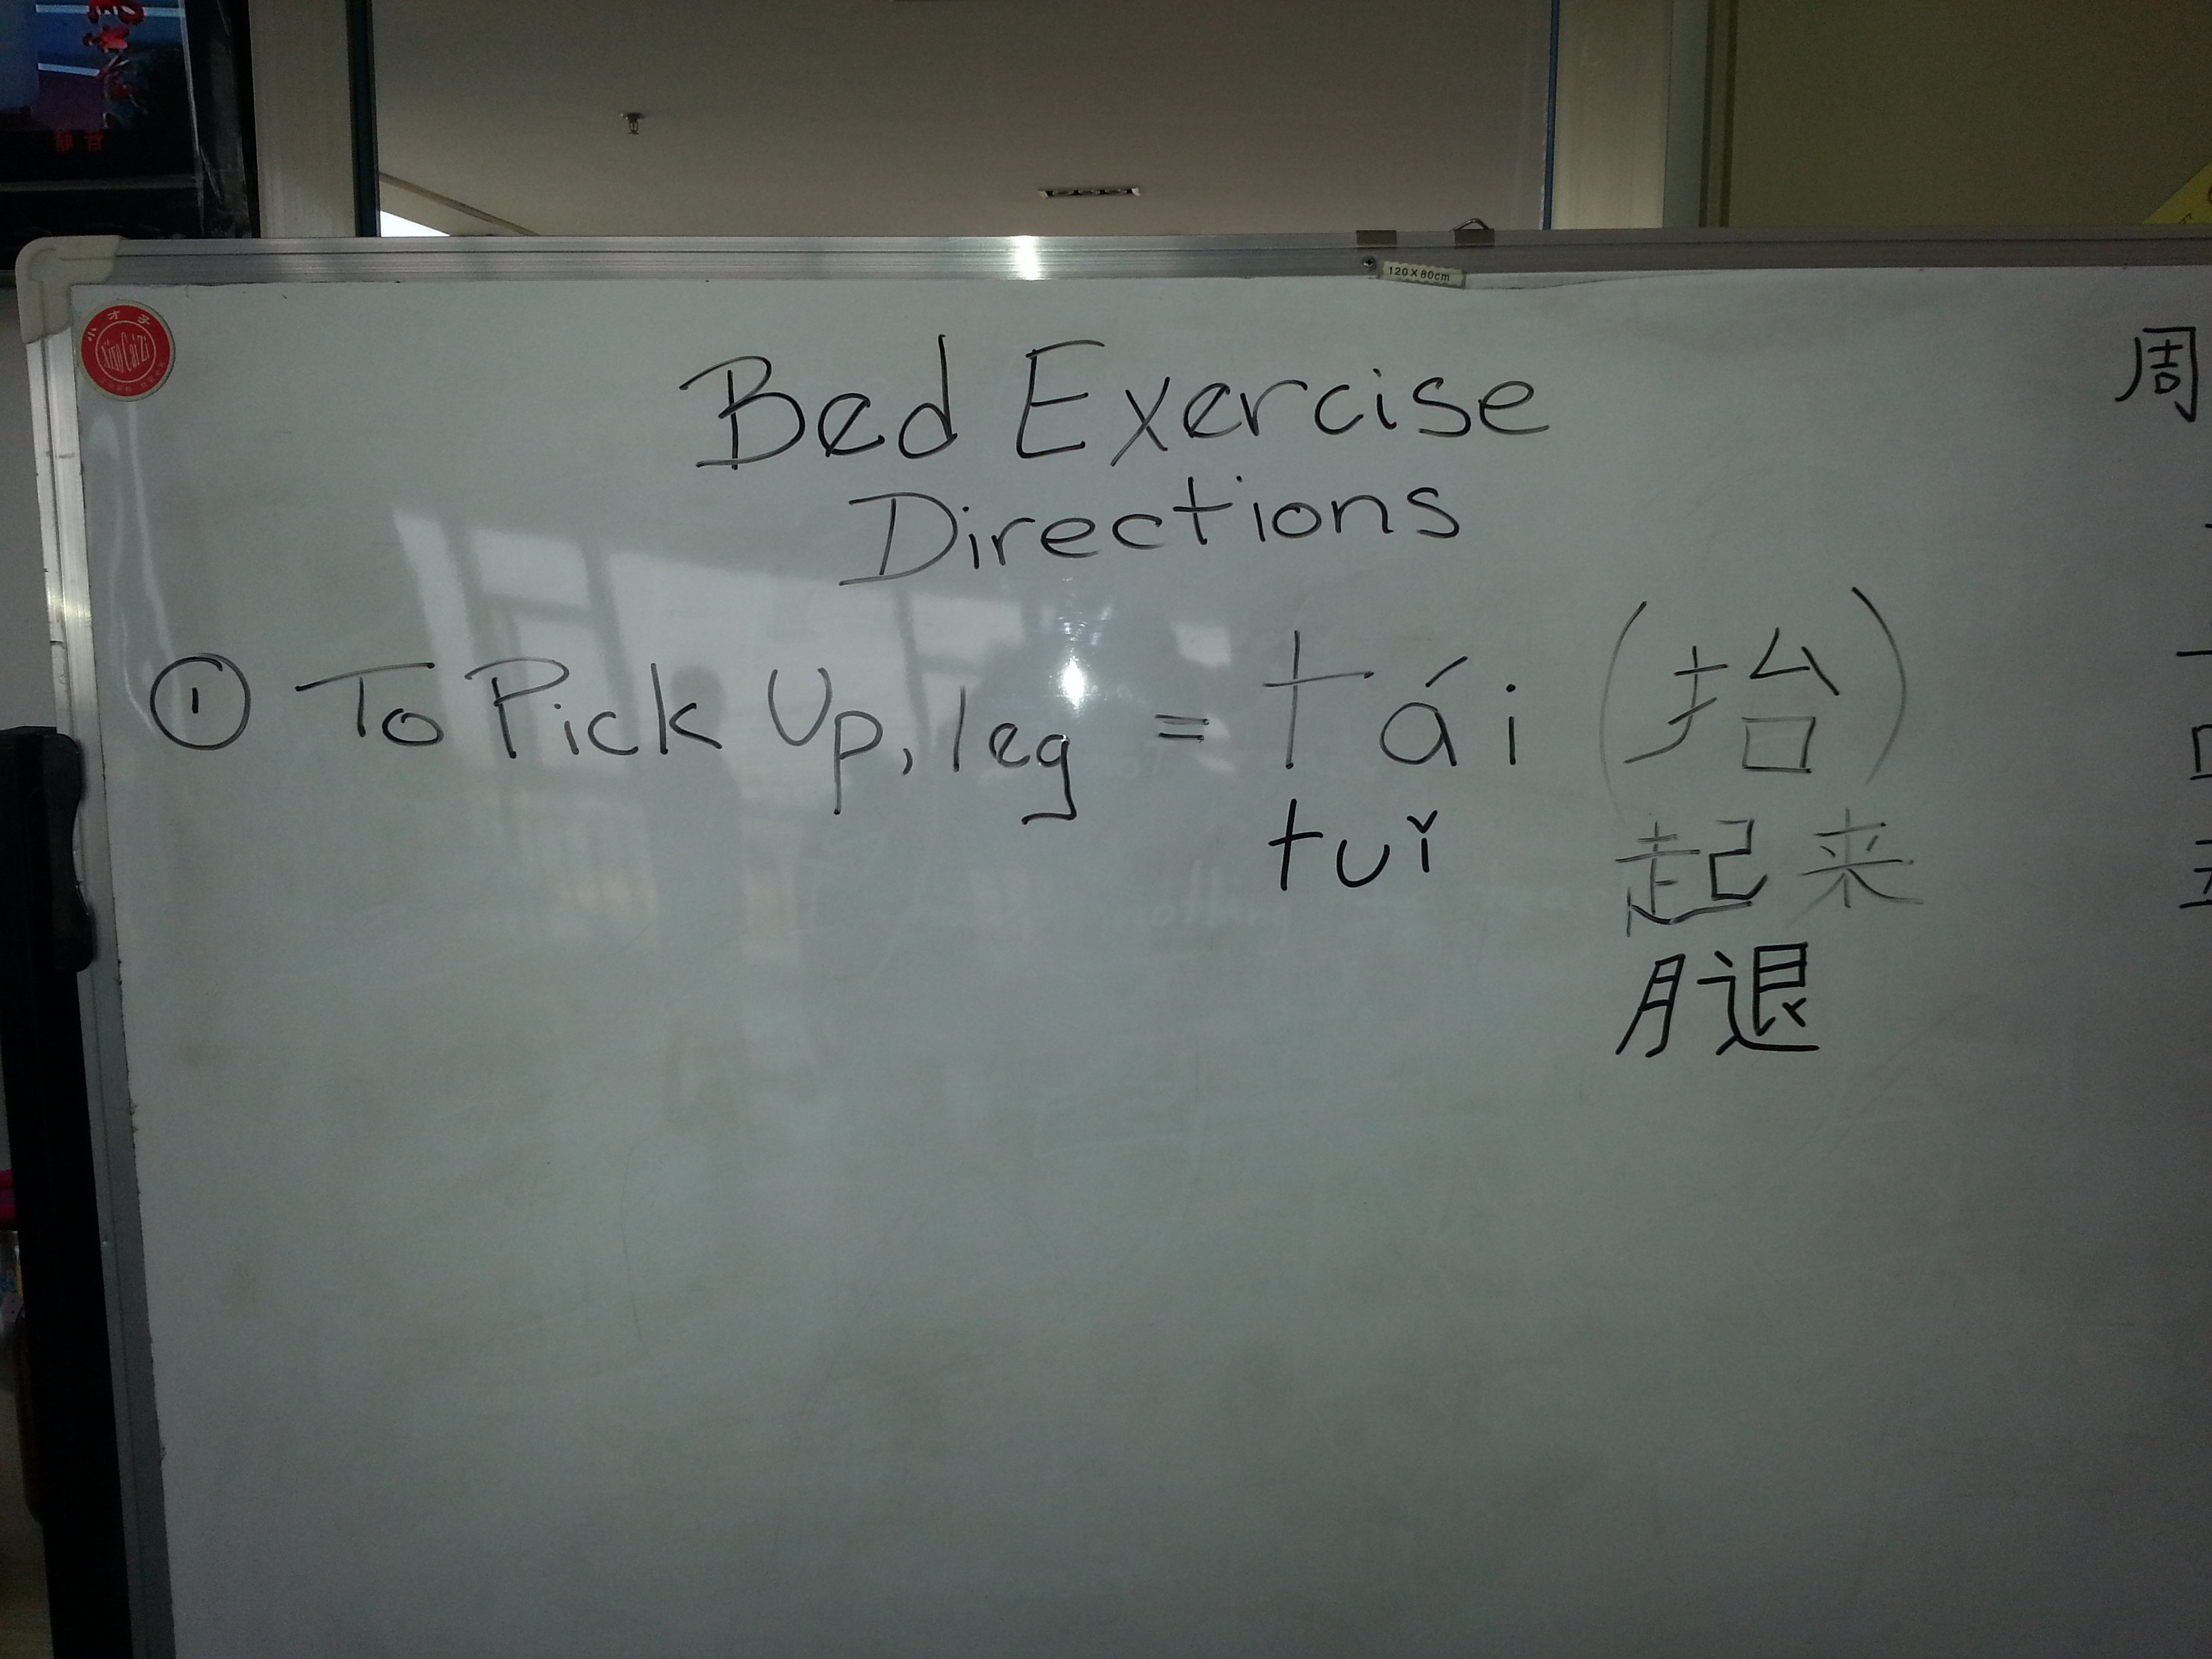 120X80cm
小才子
Xiao Cai Zi
Bed Exercise
Directions
周
① To Pick Up, leg = tái (抬)
tuǐ 起来
腿